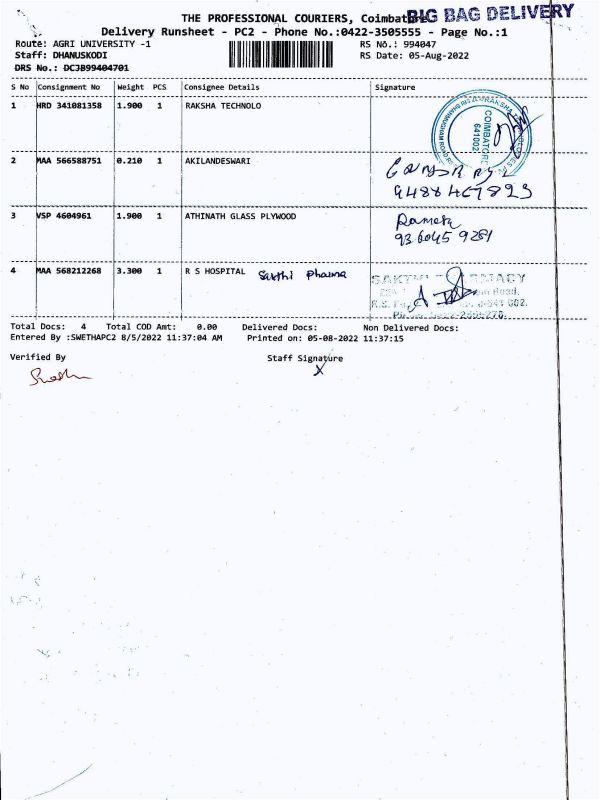 THE PROFESSIONAL COURIERS, Coimbat
BIG BAG DELIVERY
Delivery Runsheet - PC2 - Phone No.:0422-3505555 - Page No.:1
Route: AGRI UNIVERSITY -1 RS No.: 994047
Staff: DHANUSKODI RS Date: 05-Aug-2022
DRS No.: DCJB99404701
S No Consignment No Weight PCS Consignee Details Signature
1 HRD 341081358 1.900 1 RAKSHA TECHNOLO
COIMBATORE
641002
2 MAA 566588751 0.210 1 AKILANDESWARI
9488467823
3 VSP 4604961 1.900 1 ATHINATH GLASS PLYWOOD Ramesh
936045 9281
4 MAA 568212268 3.300 1 R S HOSPITAL Sakthi Pharma
Total Docs: 4 Total COD Amt: 0.00 Delivered Docs: Non Delivered Docs:
Entered By :SWETHAPC2 8/5/2022 11:37:04 AM Printed on: 05-08-2022 11:37:15
Verified By Staff Signature
X